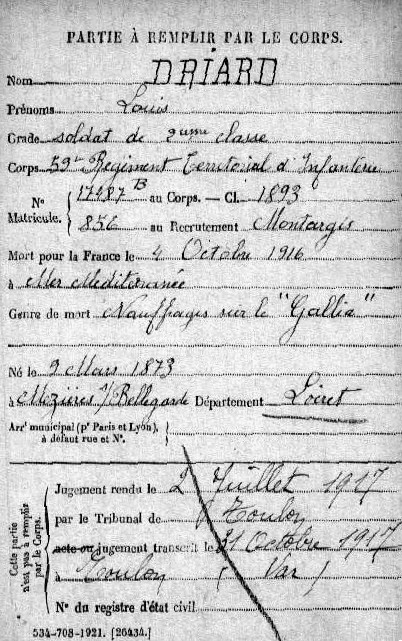 PARTIE À REMPLIR PAR LE CORPS.
Nom DRIARD
Prénoms Louis
Grade soldat de 2eme classe
Corps 59e Régiment Territorial d'Infanterie
N° Matricule. { 17487 B au Corps. — Cl. 1893
856 au Recrutement Montargis
Mort pour la France le 4 Octobre 1916
à Mer Méditerranée
Genre de mort Naufragé sur le "Gallia"
Né le 9 Mars 1873
à Mézières s/ Bellegarde Département Loiret
Arrt municipal (pr Paris et Lyon), à défaut rue et N°. {
Cette partie n'est pas à remplir par le Corps.
Jugement rendu le 2 Juillet 1917
par le Tribunal de Toulon
acte ou jugement transcrit le 31 Octobre 1917
à Toulon (Var)
N° du registre d'état civil
534-708-1921. [26434.]